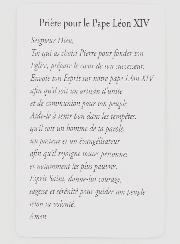 Prière pour le Pape Léon XIV
Seigneur Dieu,
Toi qui as choisi Pierre pour fonder ton
Eglise, prépare le cœur de son successeur.
Envoie ton Esprit sur notre pape Léon XIV
afin qu'il soit un artisan d'unité
et de communion pour ton peuple.
Aide-le à tenir bon dans les tempêtes,
qu'il soit un homme de ta parole,
un pasteur et un évangélisateur
afin qu'il rejoigne toutes personnes
et notamment les plus pauvres.
Esprit Saint, donne-lui courage,
sagesse et sérénité pour guider ton peuple
selon ta volonté.
Amen